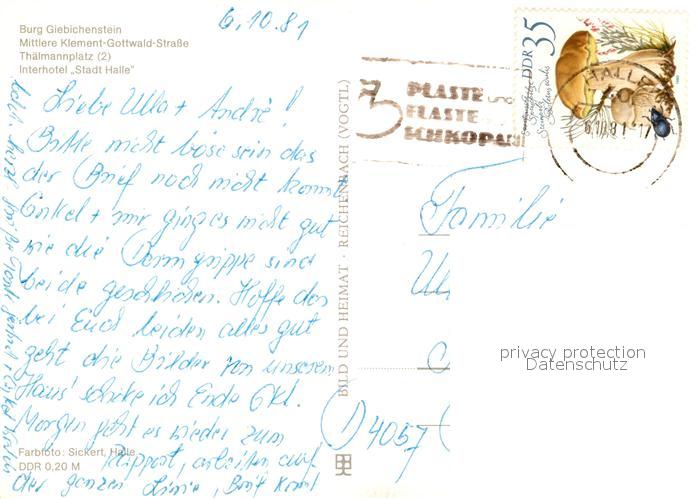 Burg Giebichenstein
Mittlere Klement-Gottwald-Straße
Thälmannplatz (2)
Interhotel „Stadt Halle"
6.10.81
Liebe Ulla + André!
Bitte nicht böse sein das
der Brief noch nicht kommt
Enkel + mir ging es nicht gut
wie die Darmgrippe sind
beide geschlichen. Hoffe das
bei Euch beiden alles gut
geht die Bilder von unserem
Haus schike ich Ende Okt.
Morgen geht es wieder zum
Rapport, arbeiten auf
der ganzen Linie, Brief kommt
Farbfoto: Sickert, Halle
DDR 0,20 M
BILD UND HEIMAT · REICHENBACH (VOGTL)
PLASTE
ELASTE
SCHKOPAU
DDR 35
HALLE
6.10.81-17
Familie
Ull
(1) 4057
privacy protection
Datenschutz